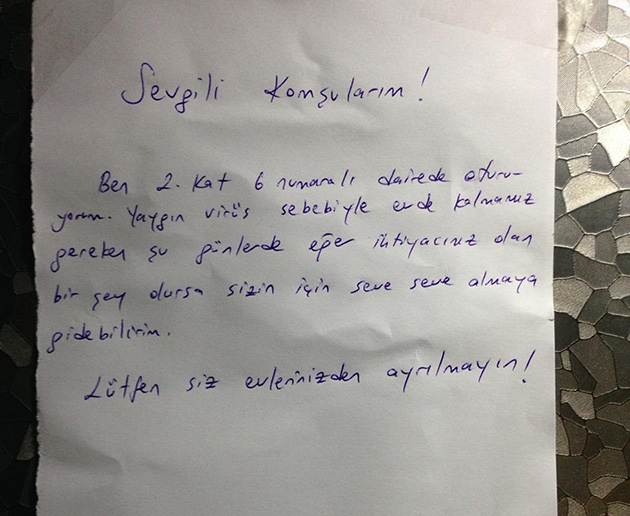 Sevgili Komşularım!
Ben 2. Kat 6 numaralı dairede oturu-
yorum. Yaygın virüs sebebiyle evde kalmamız
gereken şu günlerde eğer ihtiyacınız olan
bir şey olursa sizin için seve seve almaya
gidebilirim.
Lütfen siz evlerinizden ayrılmayın!